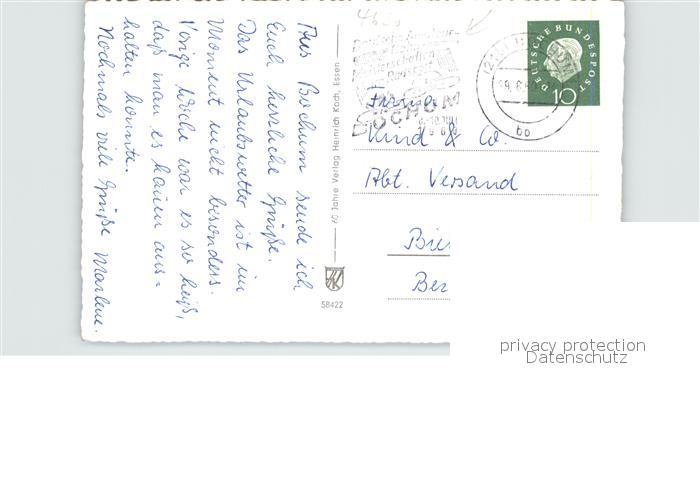 Aus Bochum sende ich
Euch herzliche Grüße.
Das Urlaubswetter ist im
Moment nicht besonders.
Vorige Woche war es so heiß,
daß man es kaum aus=
halten konnte.
Nochmals viele Grüße Marlene.
40 Jahre Verlag Heinrich Koch, Essen
HK
58422
BOCHUM
DEUTSCHE BUNDESPOST
10
bo
Firma
Kind & Co.
Abt. Versand
Bie
Ber
privacy protection
Datenschutz